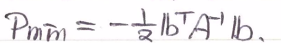 Pmin = -½ 𝕓ᵀA⁻¹𝕓.